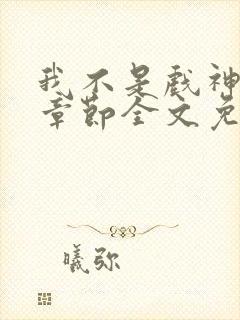 我不是戏神
章节全文免
曦弥